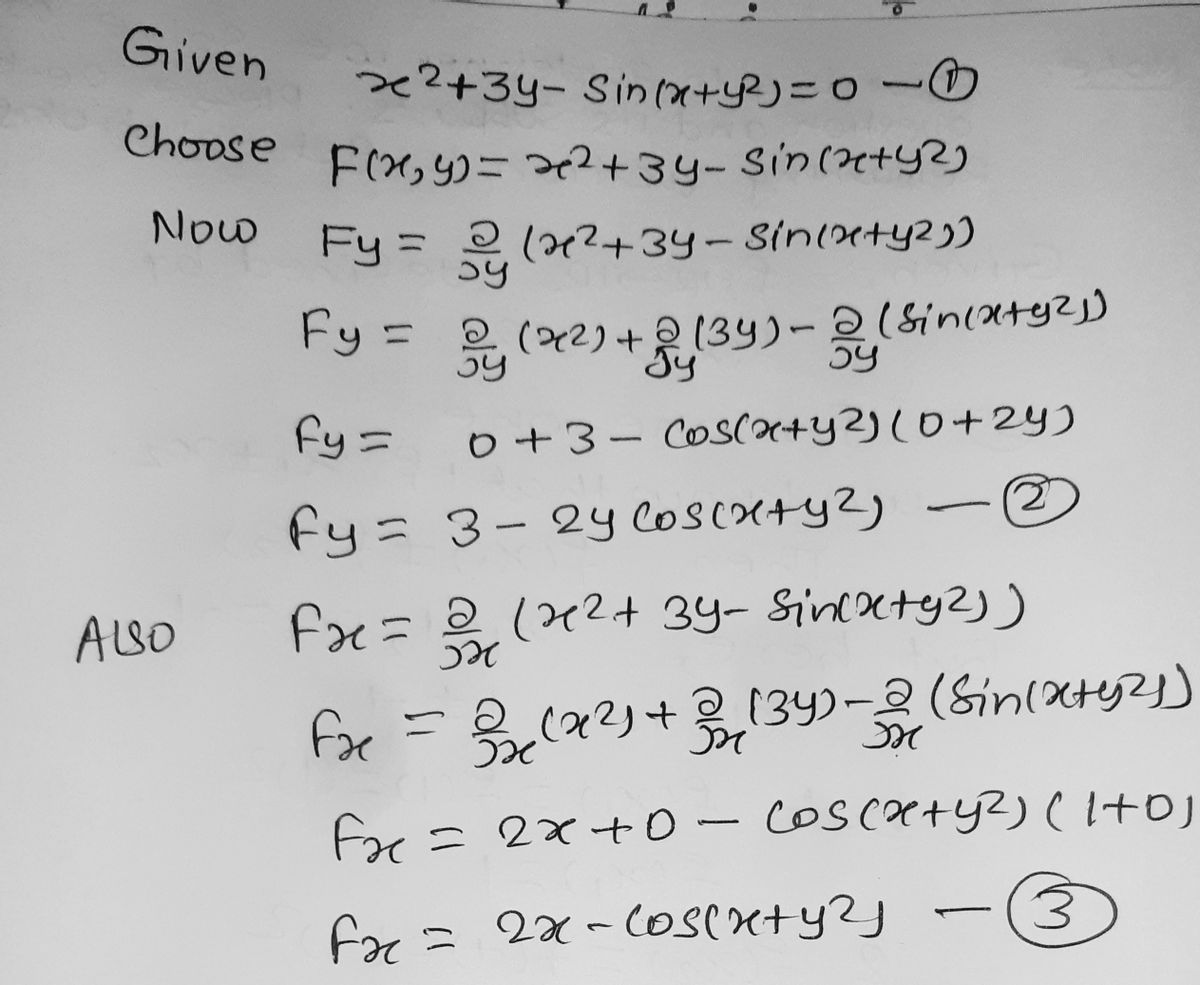 Given x²+3y- Sin(x+y²)=0 —①
Choose F(x,y)= x²+3y- Sin(x+y²)
Now Fy = ∂/∂y (x²+3y-Sin(x+y²))
Fy = ∂/∂y (x²)+∂/∂y(3y)-∂/∂y(Sin(x+y²))
fy = 0+3- Cos(x+y²)(0+2y)
fy = 3-2y Cos(x+y²) —②
Also fx = ∂/∂x (x²+3y-Sin(x+y²))
fx = ∂/∂x (x²)+∂/∂x(3y)-∂/∂x(Sin(x+y²))
fx = 2x+0- Cos(x+y²)(1+0)
fx = 2x-Cos(x+y²) —③